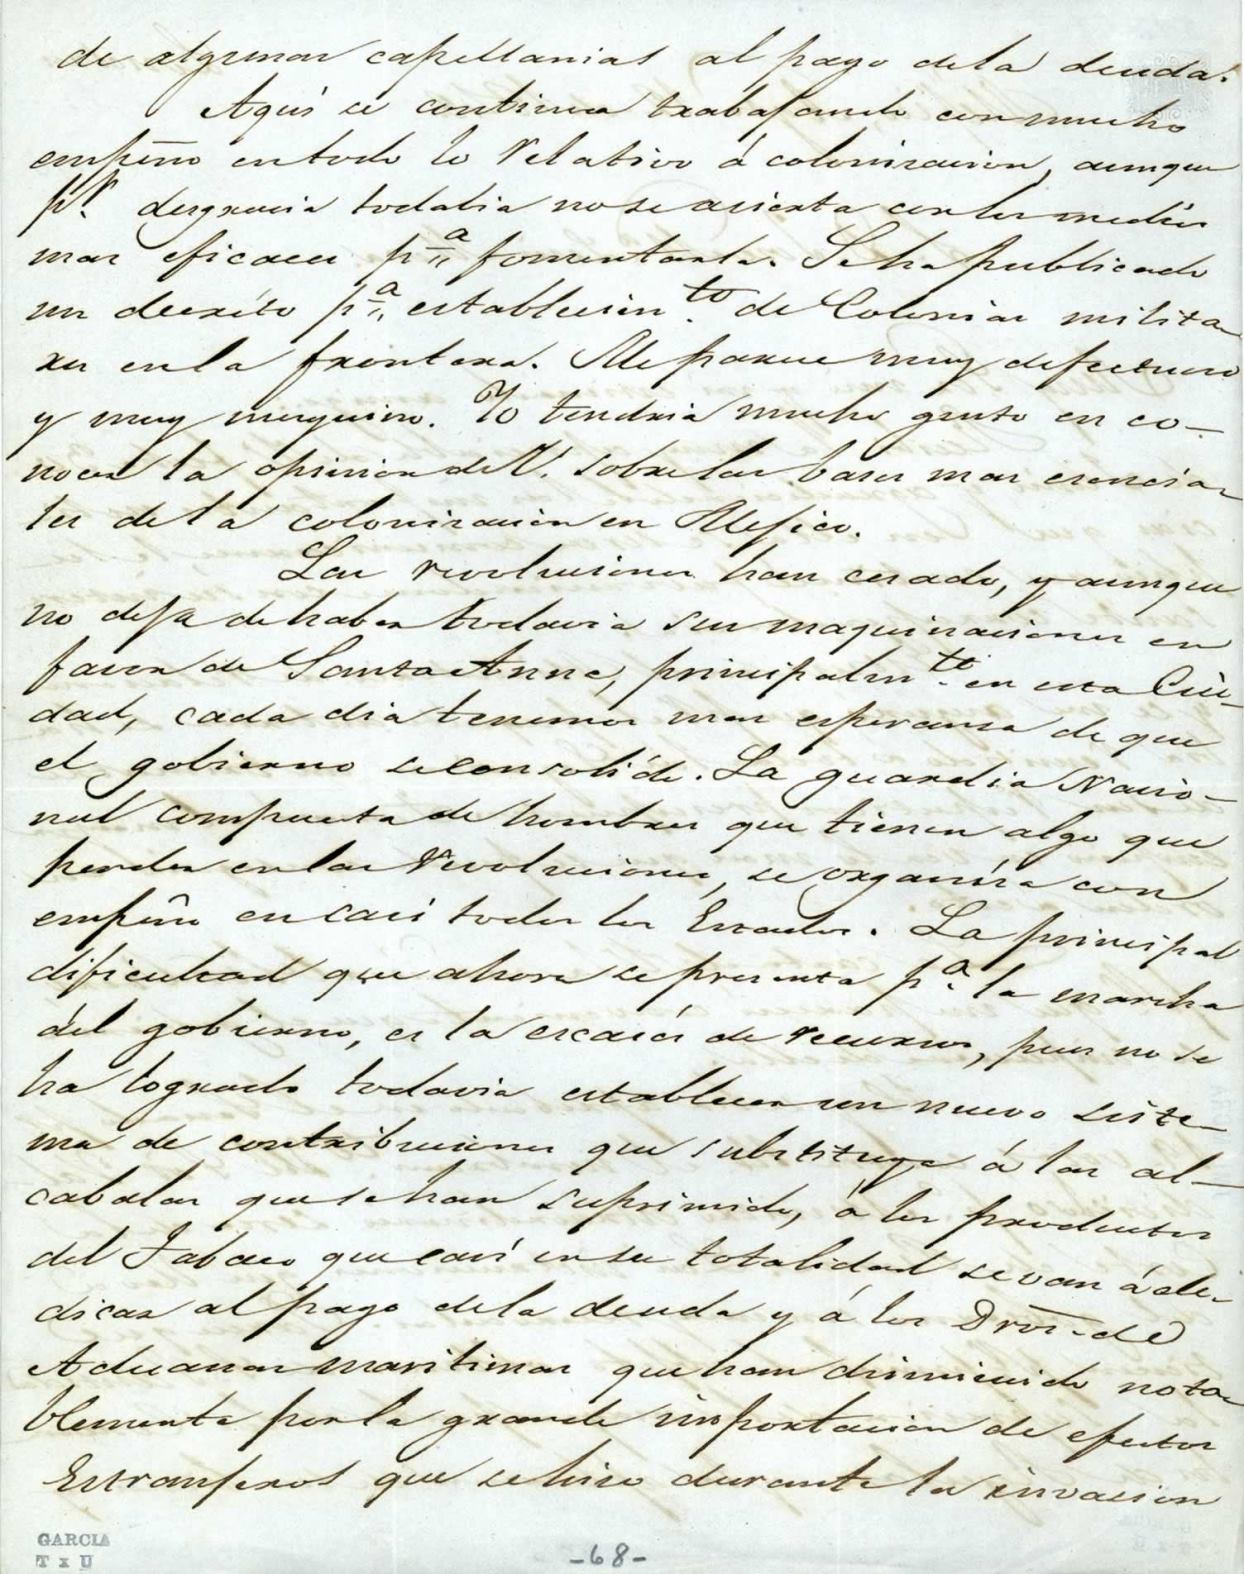 de algunas capellanias al pago dela deuda.
Aqui se continua trabajando con mucho
empeño entodo lo relativo á colonizacion, aunque
pr. desgracia todabia nose acierta con los medios
mas eficaces pa. fomentarla. Seha publicado
un decreto pa. establecimto. de Colonias milita
res en la frontera. Me parece muy defectuoso
y muy mezquino. Yo tendria mucho gusto en co-
nocer la opinion de V. sobre las bases mas esencia-
les de la colonizacion en Mejico.
Las revoluciones han cesado, y aunque
no deja de haber todavia sus maquinaciones en
favor de Santa Anna, principalmte. en esta Ciu-
dad, cada dia tenemos mas esperanza de que
el gobierno se consolide. La guardia Nacio-
nal compuesta de hombres que tienen algo que
perder en las revoluciones, se organiza con
empeño en casi todos los Estados. La principal
dificultad que ahora se presenta pa. la marcha
del gobierno, es la escasés de recursos, pues no se
ha logrado todavia establecer un nuevo siste-
ma de contribuciones que substituya á las al-
cabalas que se han suprimido, á los productos
del Tabaco que casi en su totalidad se van á de-
dicar al pago dela deuda y á los Dros. de
Aduanas maritimas que han disminuido nota-
blemente por la grande importacion de efectos
Estranjeros que se hizo durante la invasion
GARCIA
T x U
-68-